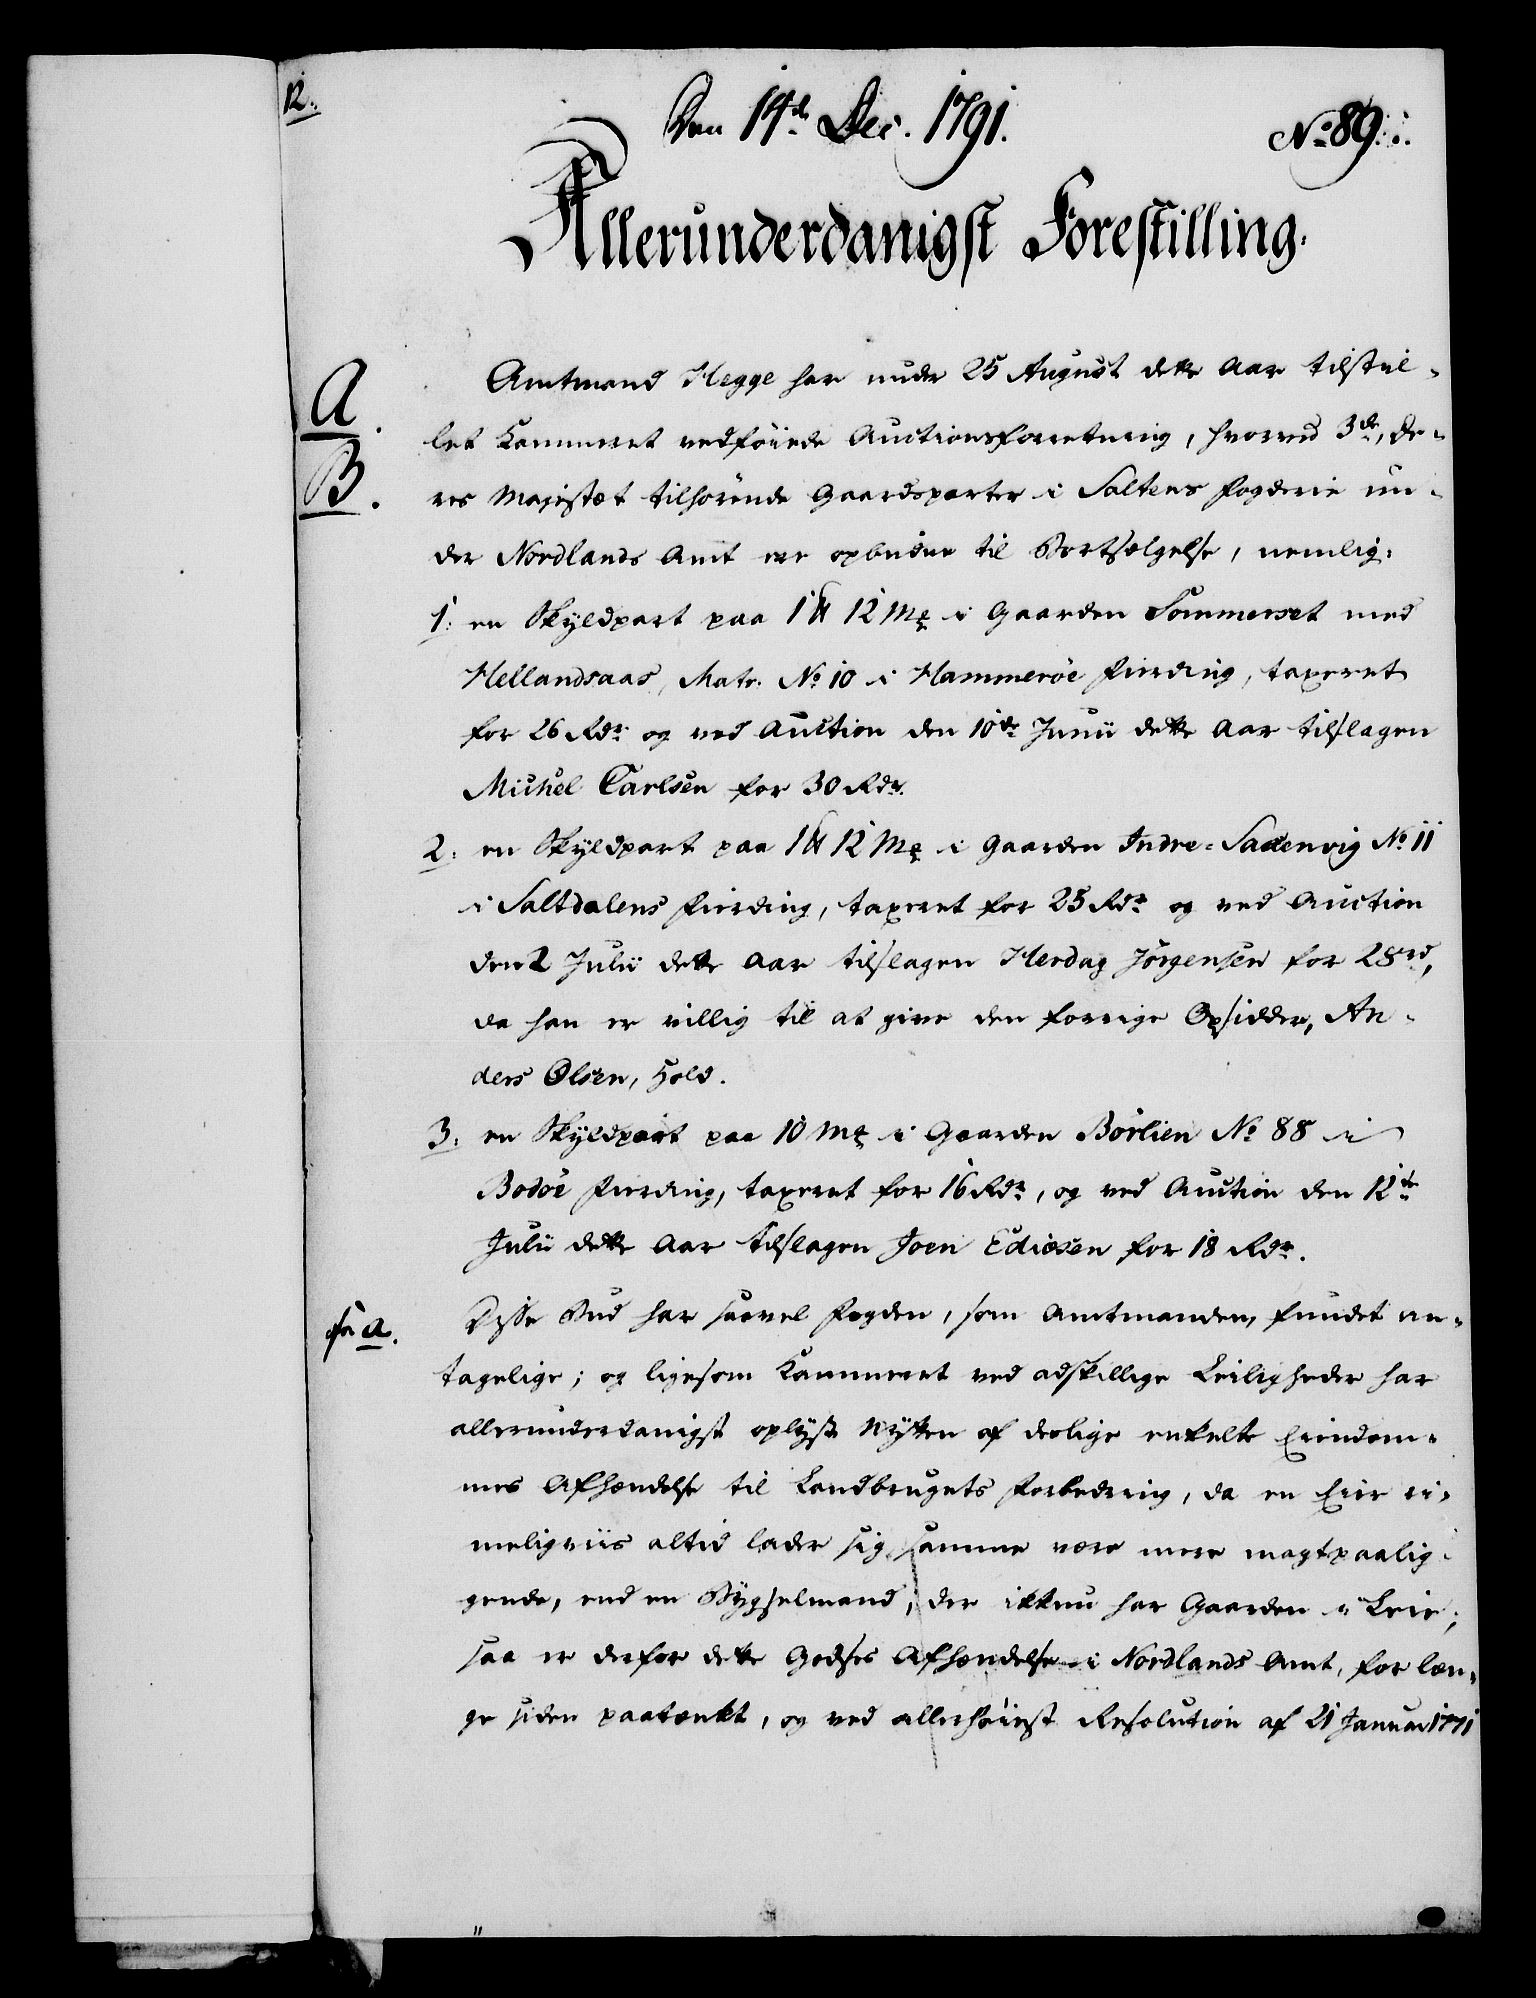 12.
Den 14de Dec. 1791.
No 89.
Allerunderdanigst Forestilling.
A.
B.
Amtmand Hegge har under 25 August dette Aar tilstil-
let Kammeret vedføiede Auctionsforretning, hvorved 3de, De-
res Majestæt tilhørende Gaardsparter i Saltens Fogderie un-
der Nordlands Amt ere opbudne til Bortsælgelse, nemlig:
1: en Skyldpart paa 1 ℔ 12 Mk i Gaarden Sommerset med
Hellandsaas, Matr. No 10 i Hammerøe Fierding, taxeret
for 26 Rdr og ved Auction den 10de Junii dette Aar tilslagen
Michel Carlsen for 30 Rdr.
2: en Skyldpart paa 1 ℔ 12 Mk i Gaarden Indre-Sadenvig No 11
i Saltdalens Fierding, taxeret for 25 Rdr og ved Auction
den 2 Julii dette Aar tilslagen Herdag Jørgensen for 28 rd,
da han er villig til at give den forrige Opsidder, An-
ders Olsen, Hold.
3: en Skyldpart paa 10 Mk i Gaarden Børlien No 88 i
Bodøe Fierding, taxeret for 16 Rdr, og ved Auction den 12te
Julii dette Aar tilslagen Joen Ediasen for 18 Rdr.
a.
Disse Bud har saavel Fogden, som Amtmanden, fundet an-
tagelige; og ligesom Kammeret ved adskillige Leiligheder har
allerunderdanigst oplyst Nytten af deslige enkelte Eiendom-
mes Afhændelse til Landbrugets Forbedring, da en Eier ri-
meligviis altid lader sig samme være mere magtpaalig-
gende, end en Bygselmand, der ikkun har Gaarden i Leie;
saa er derfor dette Godses Afhændelse i Nordlands Amt, for læn-
ge siden paatænkt, og ved allerhøiest Resolution af 21 Januar 1771